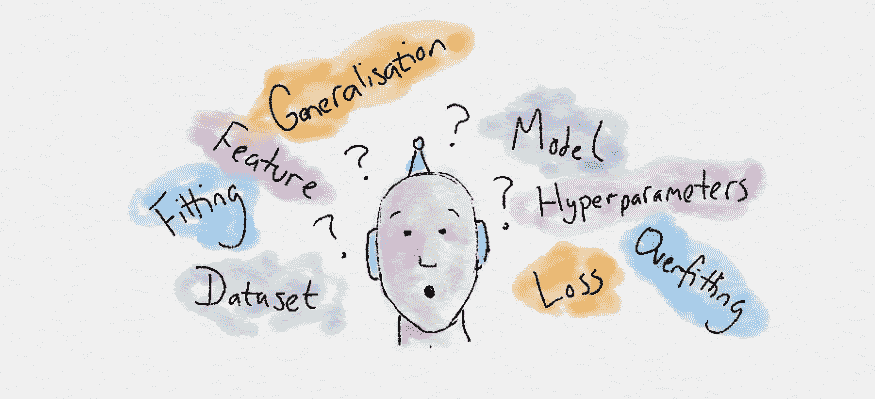 Generalisation
Feature
Fitting
Dataset
?
?
?
?
Model
Hyperparameters
Loss
Overfitting